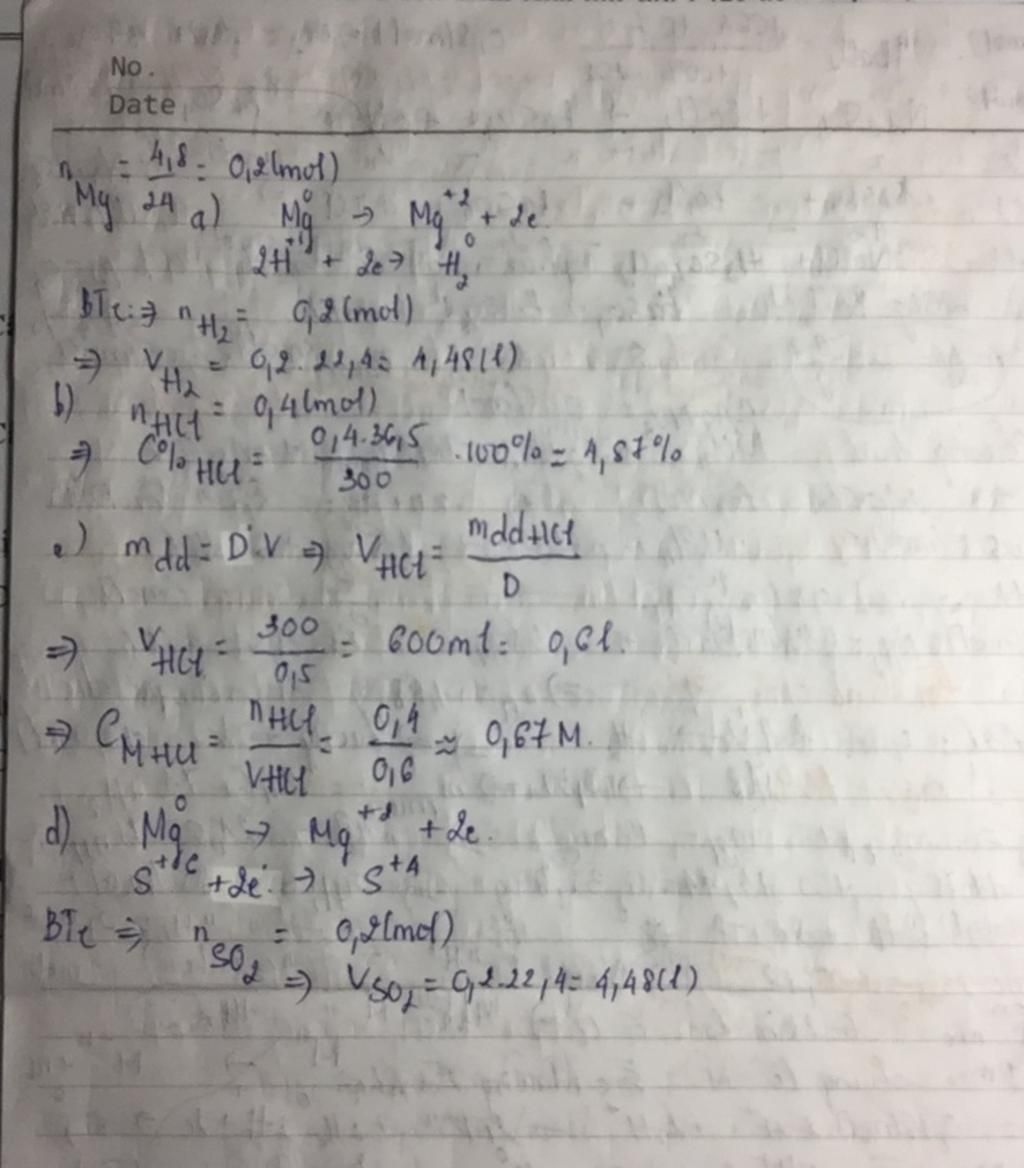 No.
Date
n Mg = 4,8/24 = 0,2(mol)
a) Mg⁰ → Mg⁺² + 2e
2H⁺¹ + 2e → H₂⁰
BTe: ⇒ n H₂ = 0,2(mol)
⇒ V H₂ = 0,2.22,4 = 4,48(l)
b) n HCl = 0,4(mol)
⇒ C% HCl = 0,4.36,5/300 .100% = 4,87%
c) mdd = D.V ⇒ V HCl = mddHCl/D
⇒ V HCl = 300/0,5 = 600ml = 0,6l.
⇒ C M HCl = nHCl/VHCl = 0,4/0,6 ≈ 0,67M.
d) Mg⁰ → Mg⁺² + 2e.
S⁺⁶ + 2e → S⁺⁴
BTe ⇒ n SO₂ = 0,2(mol)
⇒ V SO₂ = 0,2.22,4 = 4,48(l)